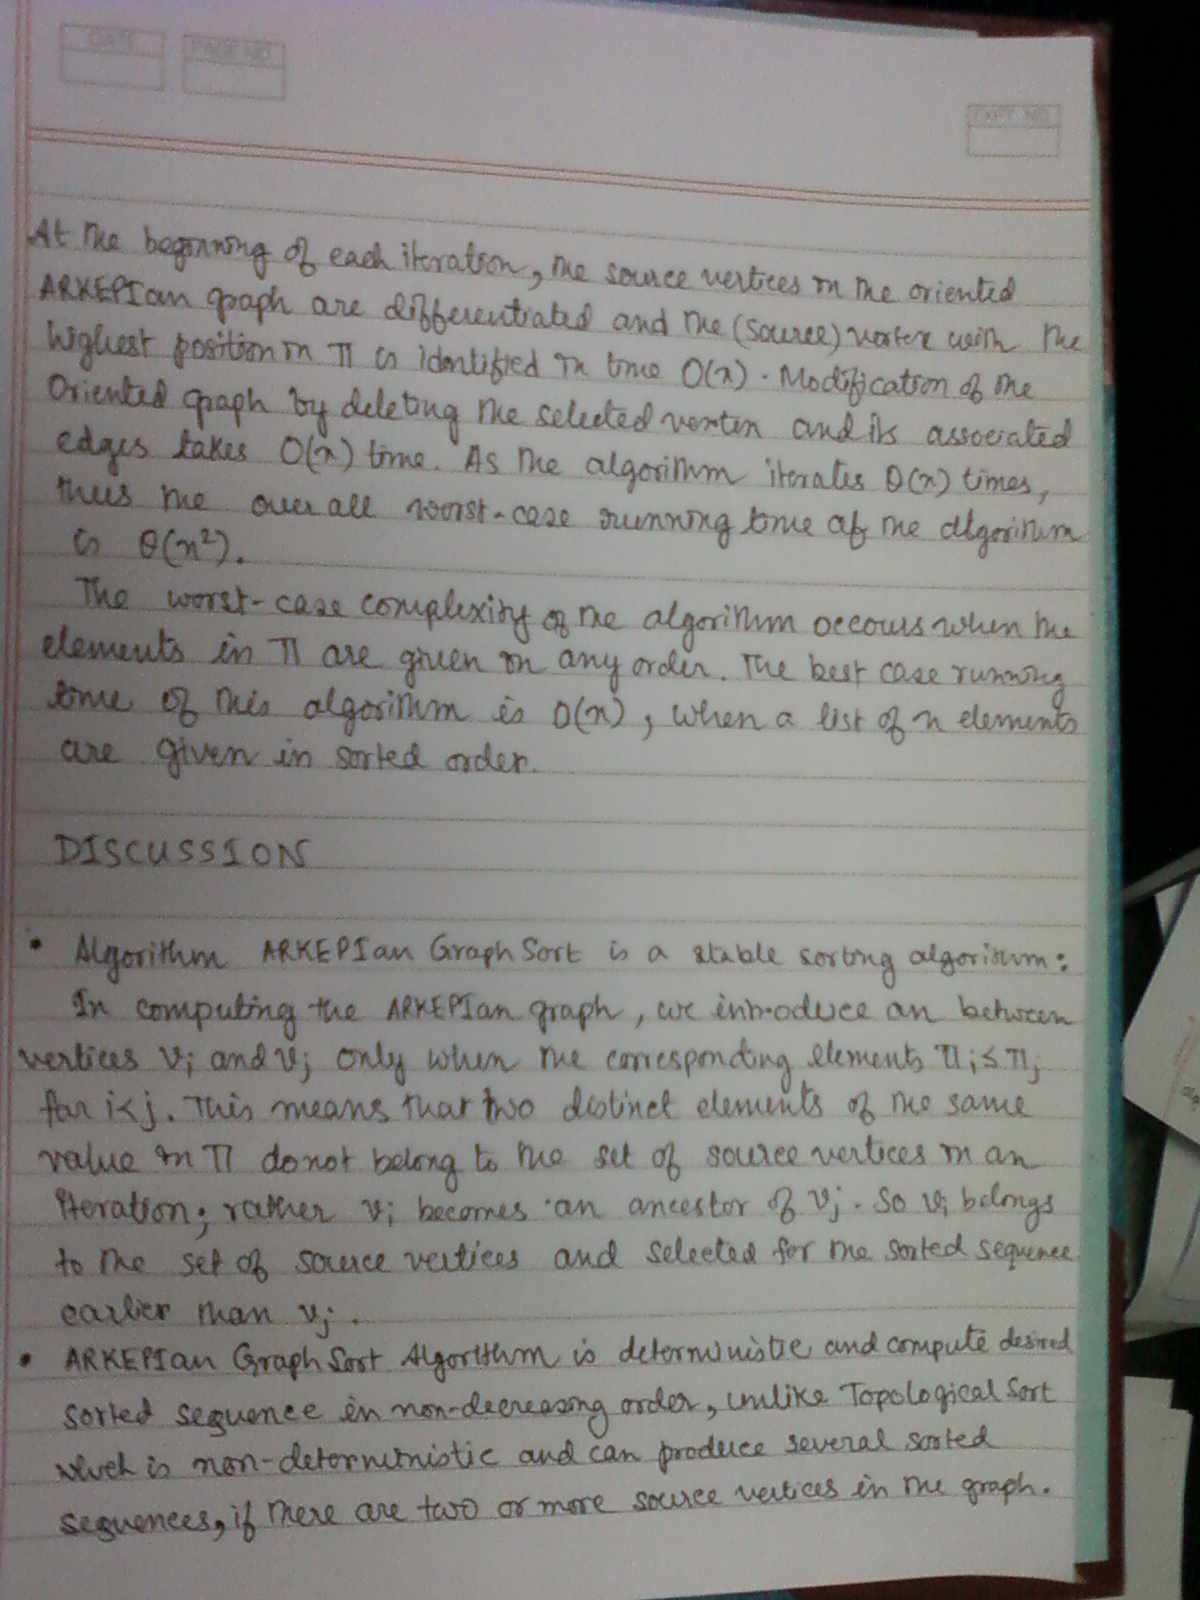 DATE
PAGE NO.
EXPT. NO.
At the beginning of each iteration, the source vertices in the oriented
ARKEPIan graph are differentiated and the (source) vertex with the
highest position in π is identified in time O(n). Modification of the
Oriented graph by deleting the selected vertex and its associated
edges takes O(n) time. As the algorithm iterates θ(n) times,
thus the over all worst-case running time of the algorithm
is θ(n²).
The worst-case complexity of the algorithm occours when the
elements in π are given in any order. The best case running
time of this algorithm is O(n), when a list of n elements
are given in sorted order.
DISCUSSION
• Algorithm ARKEPIan GraphSort is a stable sorting algorithm:
In computing the ARKEPIan graph, we introduce an between
vertices vi and vj only when the corresponding elements πi ≤ πj
for i<j. This means that two distinct elements of the same
value in π do not belong to the set of source vertices in an
iteration; rather vi becomes an ancestor of vj. So vi belongs
to the set of source vertices and selected for the sorted sequence
earlier than vj.
• ARKEPIan GraphSort Algorithm is deterministic and compute desired
sorted sequence in non-decreasing order, unlike Topological Sort
which is non-deterministic and can produce several sorted
sequences, if there are two or more source vertices in the graph.